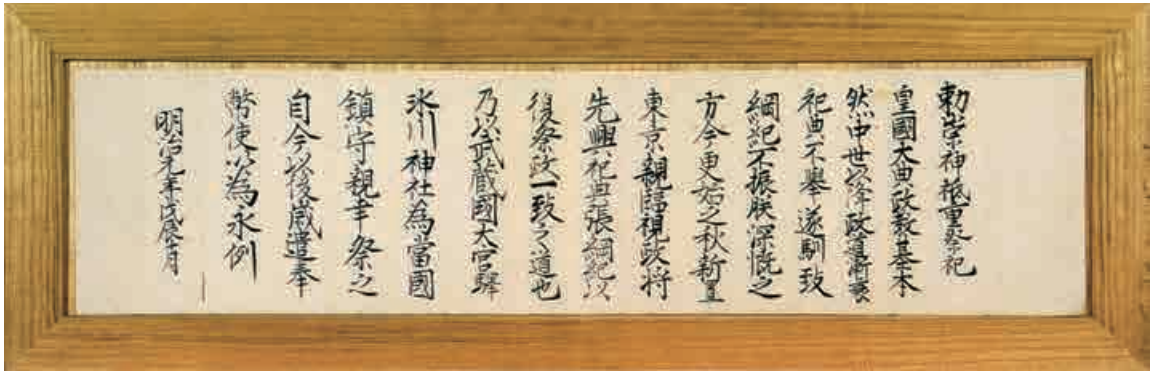 勅崇神祇重祭祀
皇國大典政教基本
然中世以降政道漸衰
祀典不舉遂馴致
綱紀不振朕深慨之
方今更始之秋新置
東京親臨視政将
先興祀典張綱紀以
復祭政一致之道也
乃以武蔵國大宮驛
氷川神社為當國
鎮守親幸祭之
自今以後歳遣奉
幣使以為永例
明治元年戊辰十月